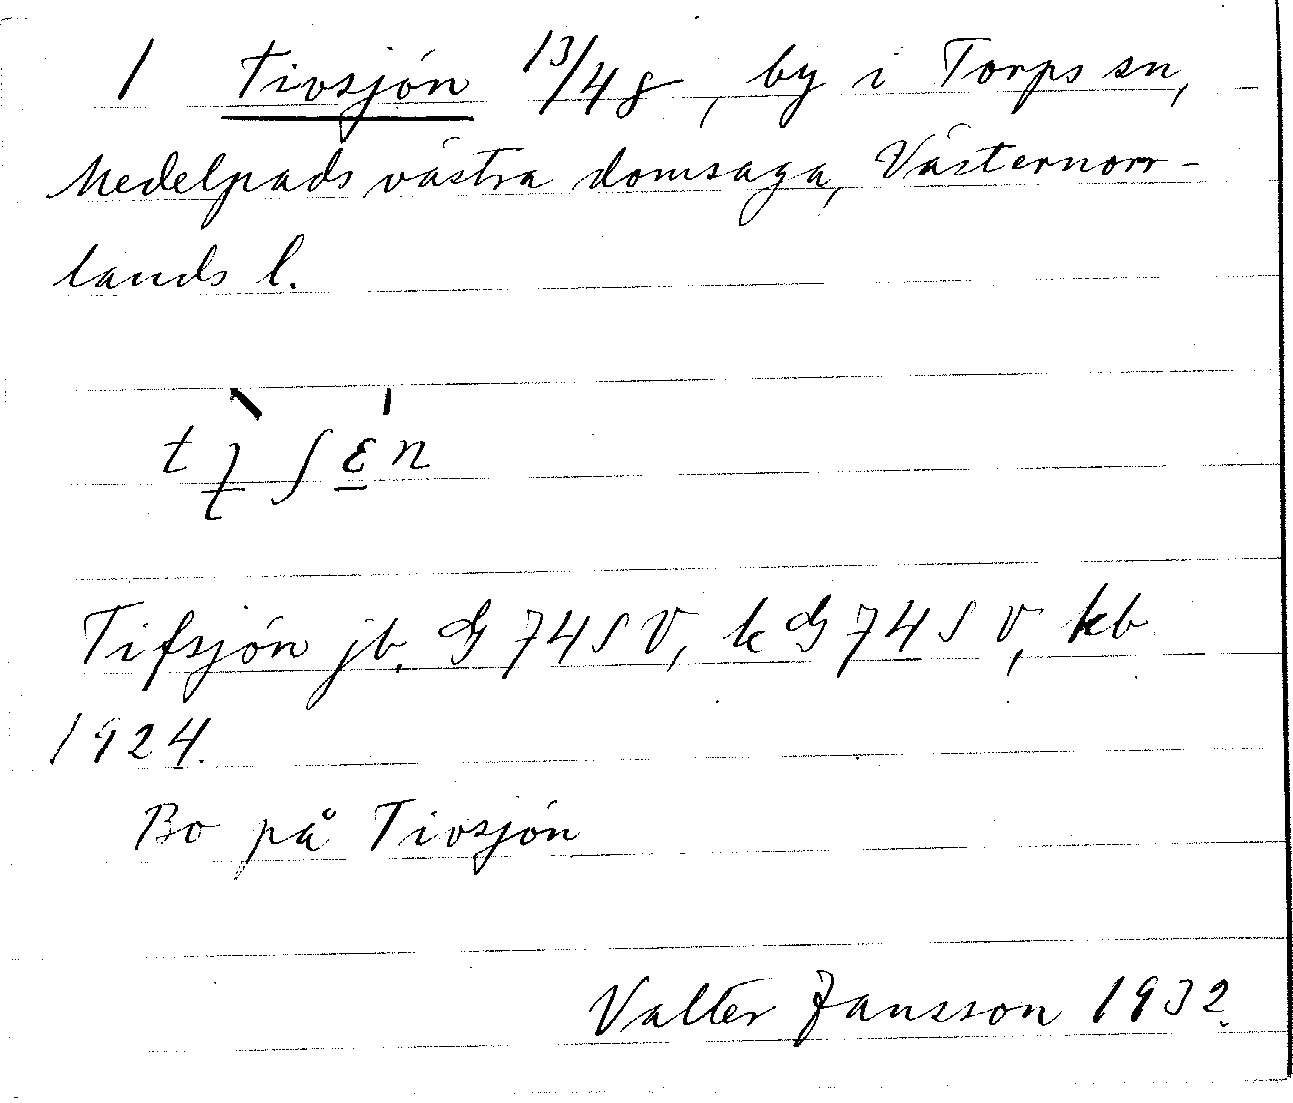 1 Tivsjön 13/48, by i Torps sn,
Medelpads västra domsaga, Västernorr-
lands l.
Tifsjön jb. G 74 S V, k G 74 S V, kb
1924.
Bo på Tivsjön
Valter Jansson 1932.